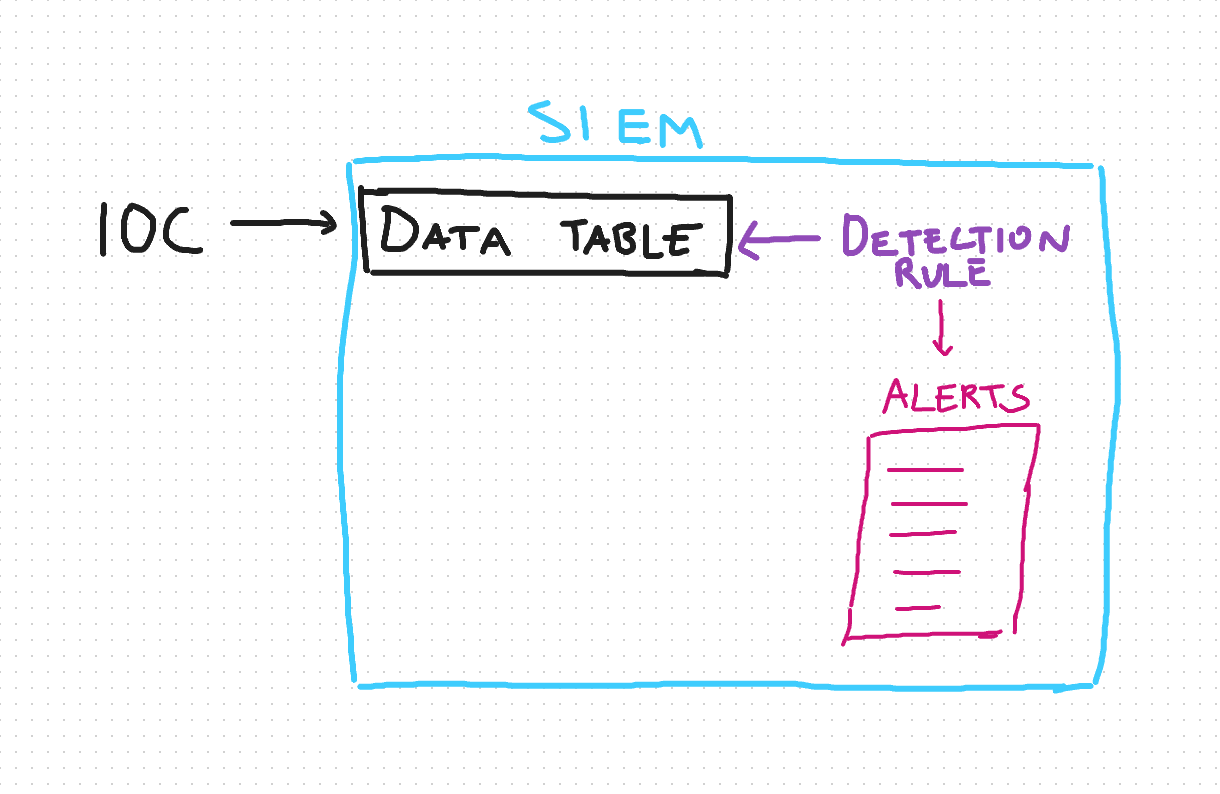 SIEM
IOC
DATA TABLE
DETECTION
RULE
ALERTS